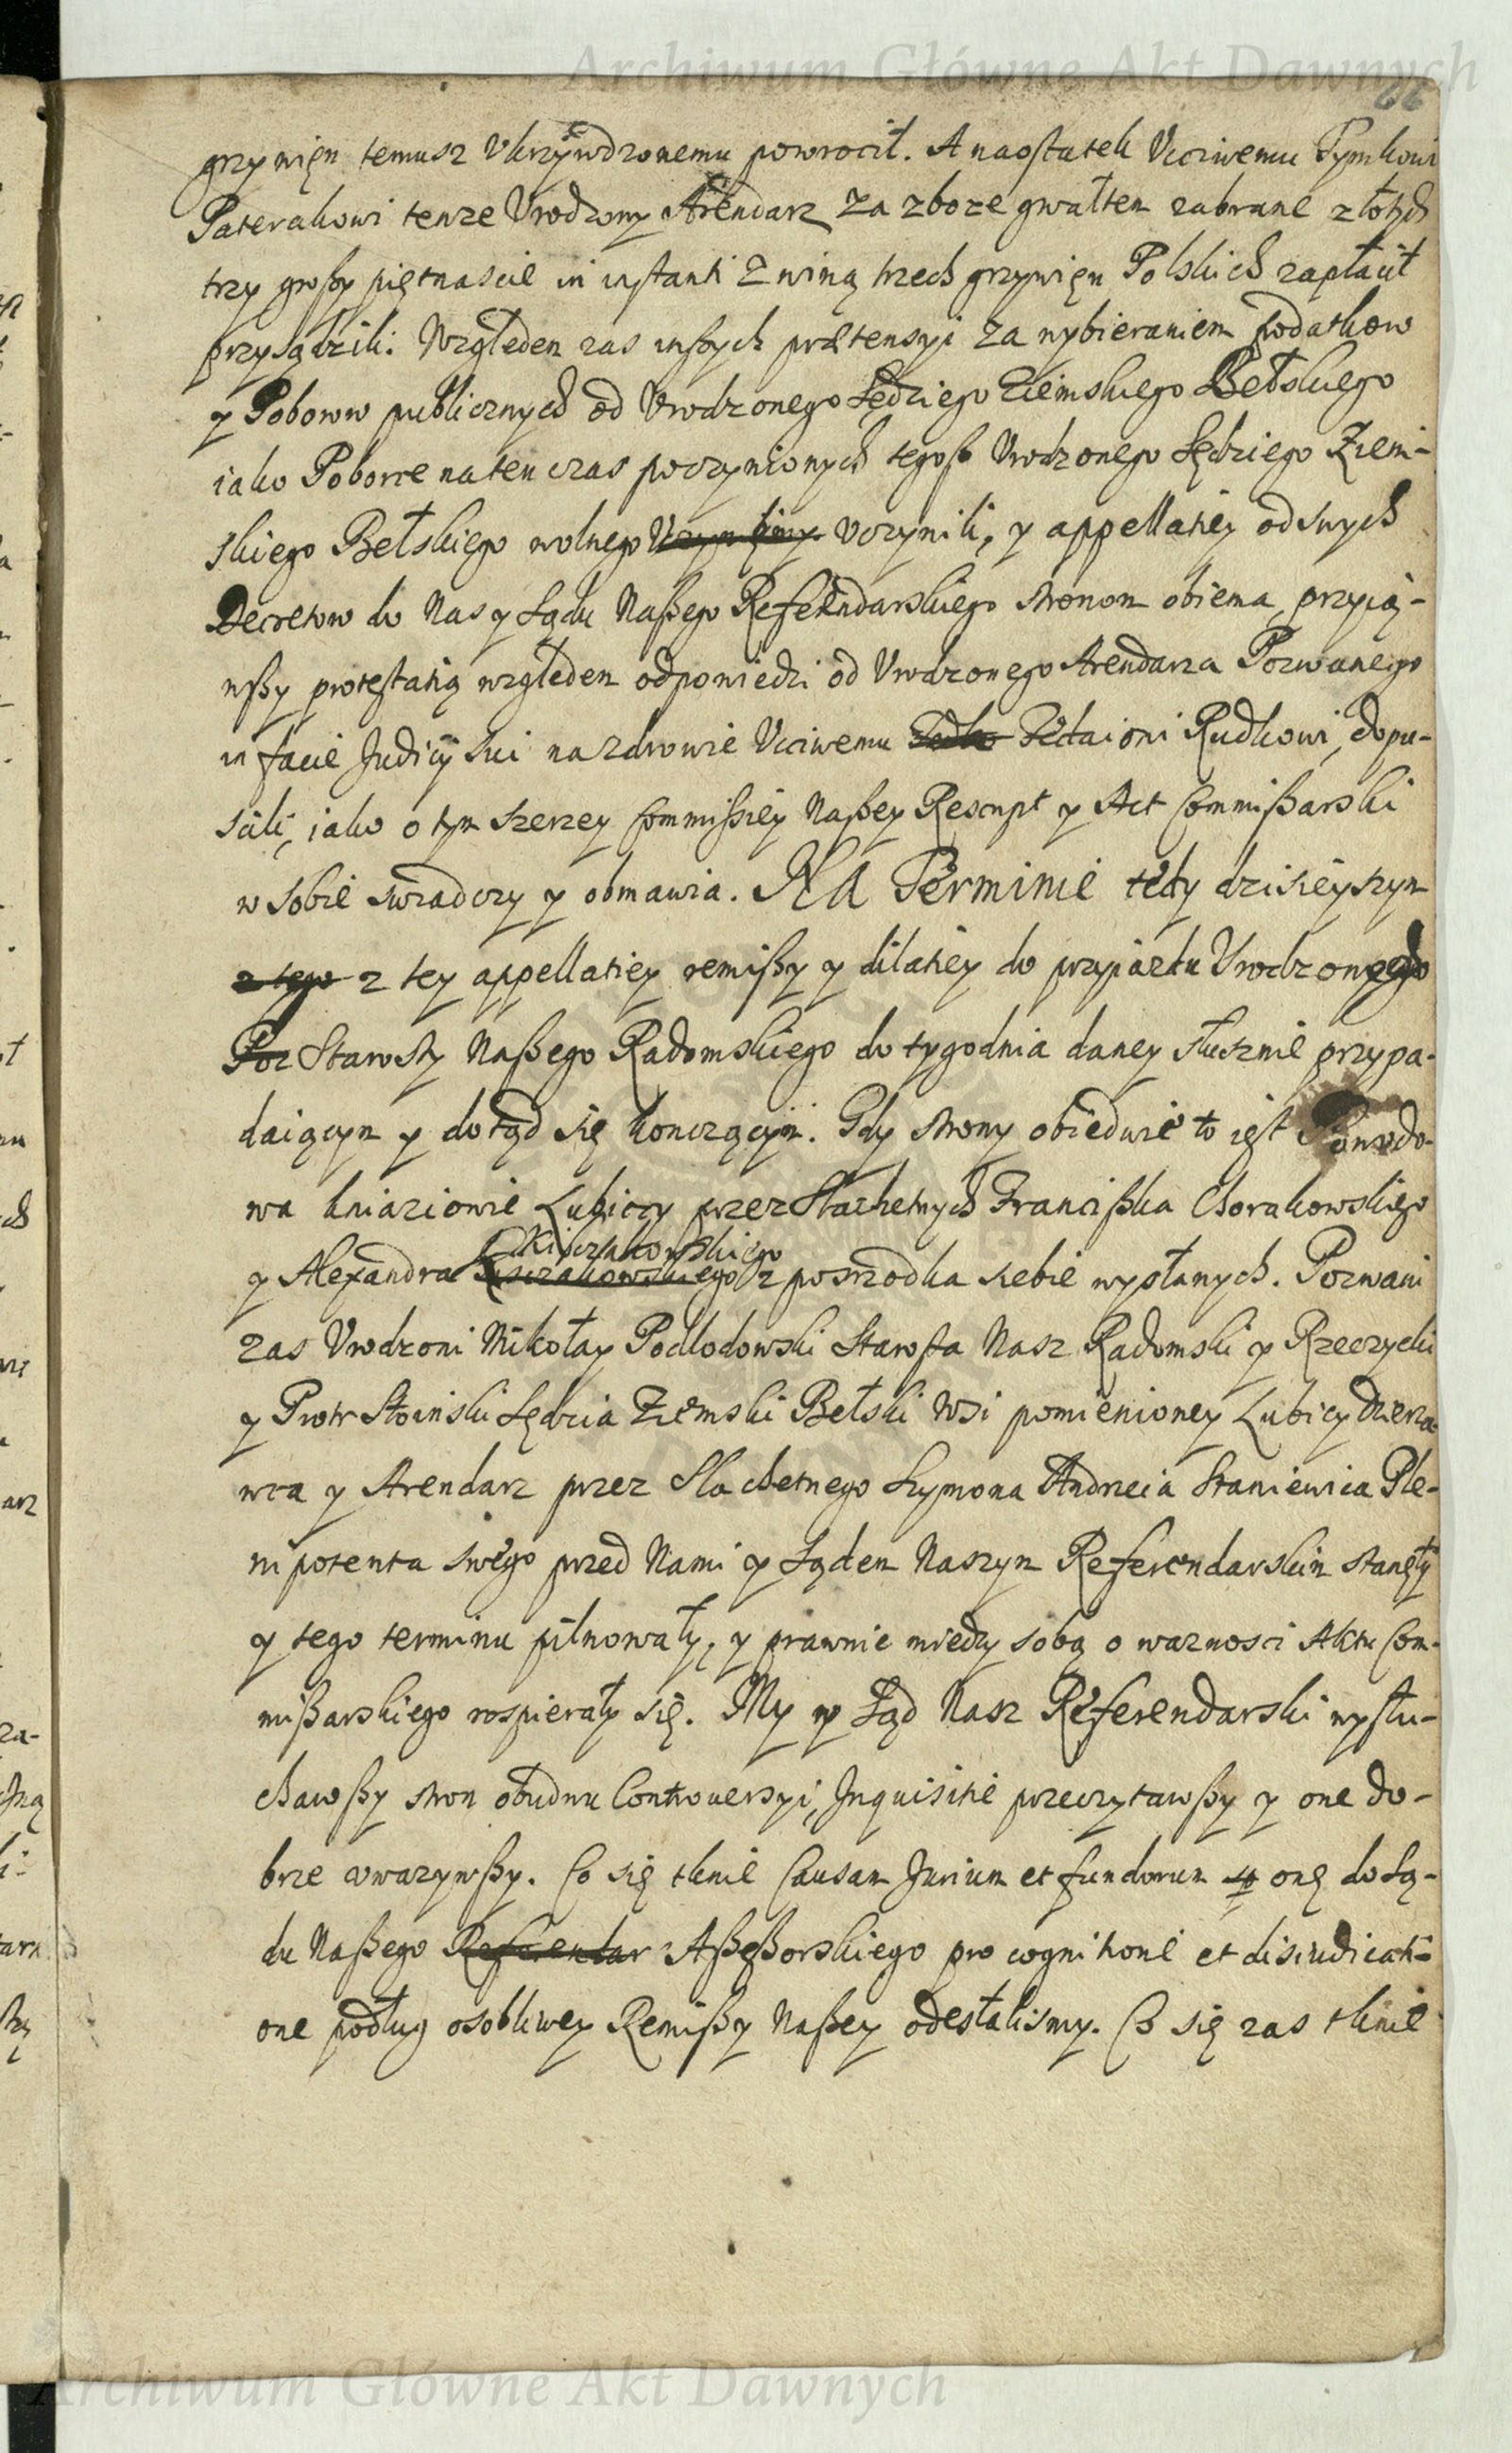 Archiwum Główne Akt Dawnych
66
grzywięn temusz Ukrzywdzonemu powrocił. A naostatek Ucciwemu Tymkowi
Paterakowi tenze Urodzony Arendarz za zboze gwałtem zabrane złotych
trzy grossy piętnascie in instanti z winą trzech grzywięn Polskich zapłacił
przysądzili. Względem zas inszych prætensyi za wybieraniem podatkow
y Poborow publicznych od Urodzonego Sędziego Ziemskiego Bełskiego
iako Poborce na ten czas poczynionych tegoß Urodzonego Sędziego Ziem-
skiego Bełskiego wolnego uczynili, y appellatiey od swych
Decretow do Nas y Sądu Naßego Referendarskiego stronom obiema przyią-
wßy protestatią względem odpowiedzi od Urodzonego Arendarza Pozwanego
in facie Judicij sui na zdrowie Ucciwemu Rudkowi, dopu-
scili, iako o tym szerzey Commißiey Naßey Rescript y Act Commißarski
w sobie swiadczy y obmawia. NA Terminie tedy dzisieyszym
z tego z tey appellatiey remißy y dilatiey do przyiazdu Urodzonego
Poz Starosty Naßego Radomskiego do tygodnia daney słusznie przypa-
daiącym y dotąd się konczącym. Gdy strony obiedwie to iest Powodo-
wa kniaziowie Lubiczy przez Slachetnych Franciszka Chorakowskiego
Kisczakowskiego
y Alexandra Kisczakowskiego z posrzodka siebie wysłanych. Pozwani
zas Urodzoni Mikołay Podlodowski Starosta Nasz Radomski y Rzeczycki
y Piotr Stoinski Sędzia Ziemski Bełski Wsi pomienioney Lubicy Dzierza-
wca y Arendarz przez Slachetnego Szymona Andrzeia Staniewica Ple-
nipotenta swego przed Nami y Sądem Naszym Referendarskim stanęły
y tego terminu pilnowały, y prawnie miedzy sobą o waznosci Aktu Com-
mißarskiego rospierały się. My y Sąd Nasz Referendarski wysłu-
chawßy stron obudwu Controuersyi, Inquisitie przeczytawßy y one do-
brze uwazywßy. Co się tknie Causam Jurium et fundorum onę do Są-
du Naßego Referendar Aßeßorskiego pro cognitione et disiudicati-
one podług osobliwey Remißy Naßey odesłalismy. Co się zas tknie
Archiwum Główne Akt Dawnych